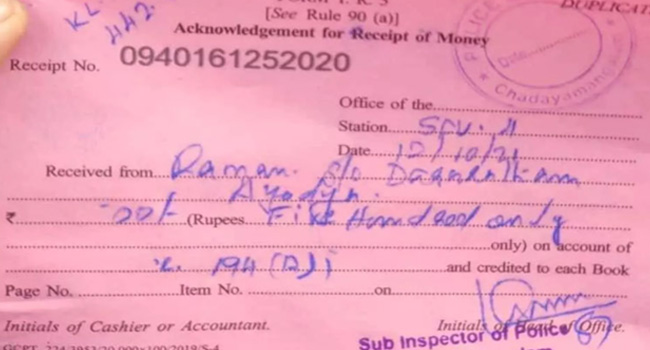 [See Rule 90 (a)]
DUPLICAT
KL
442
Acknowledgement for Receipt of Money
POLICE
Date
Chadayamangalam
Receipt No. 0940161252020
Office of the
Station
Date 12/10/21
Received from Raman. S/o
Ayodya.
₹ 500/- (Rupees Five Hundred only
only) on account of
194 (D) and credited to each Book
Page No. Item No. on
Initials of Cashier or Accountant. Initials of Head of Office.
Sub Inspector of Police